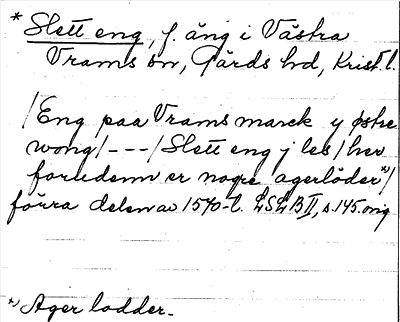 * Slett eng, f. äng i Västra
Vrams sn, Gärds hd, Krist. l.
/Eng paa Vrams marck y østre
wong/---/Slett eng j les/her
foruden er nogre agerlöder *)/
förra delen av 1570-t. LSLB II, s. 145. orig
*) Ager lodder.